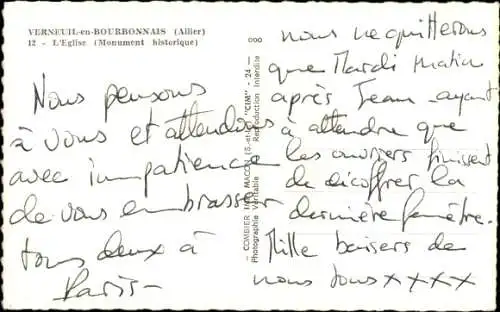 VERNEUIL-en-BOURBONNAIS (Allier)
12 - L'Eglise (Monument historique)
Nous pensons
à vous et attendons
avec impatience
de vous embrasser
tous deux à
Paris -
COMBIER IMP. MACON (S.-et-L.) "CIM" - 24 -
Photographie véritable Reproduction Interdite
nous ne quitterons
que Mardi Matin
après Jean ayant
à attendre que
les ouvriers finissent
de décoffrer la
dernière fenêtre.
Mille baisers de
nous tous xxxx